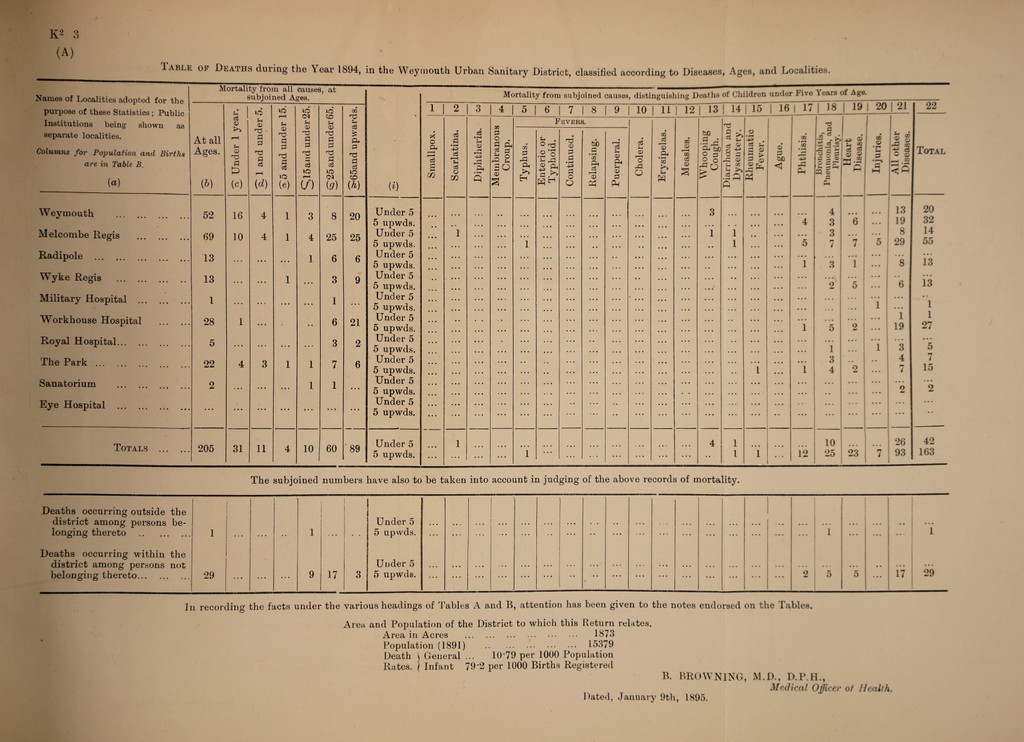 K² 3
(A)
TABLE OF DEATHS during the Year 1894, in the Weymouth Urban Sanitary District, classified according to Diseases, Ages, and Localities.
Names of Localities adopted for the purpose of these Statistics; Public Institutions being shown as separate localities.
Columns for Population and Births are in Table B.
(a)
Mortality from all causes, at subjoined Ages.
At all Ages. (b) | Under 1 year. (c) | 1 and under 5. (d) | 5 and under 15. (e) | 15 and under 25. (f) | 25 and under 65. (g) | 65 and upwards. (h)
(i)
Mortality from subjoined causes, distinguishing Deaths of Children under Five Years of Age.
1 | 2 | 3 | 4 | 5 | 6 | 7 | 8 | 9 | 10 | 11 | 12 | 13 | 14 | 15 | 16 | 17 | 18 | 19 | 20 | 21 | 22
FEVERS.
Smallpox. | Scarlatina. | Diphtheria. | Membranous Croup. | Typhus. | Enteric or Typhoid. | Continued. | Relapsing. | Puerperal. | Cholera. | Erysipelas. | Measles. | Whooping Cough. | Diarrhœa and Dysentery. | Rheumatic Fever. | Ague. | Phthisis. | Bronchitis, Pneumonia, and Pleurisy. | Heart Disease. | Injuries. | All other Diseases. | TOTAL
Weymouth ... 52 | 16 | 4 | 1 | 3 | 8 | 20 | Under 5 ... 3 ... 4 ... 13 | 20
5 upwds. ... 4 | 3 | 6 | ... | 19 | 32
Melcombe Regis ... 69 | 10 | 4 | 1 | 4 | 25 | 25 | Under 5 ... 1 ... 1 | 1 ... 3 ... 8 | 14
5 upwds. ... 1 ... 1 ... 5 | 7 | 7 | 5 | 29 | 55
Radipole ... 13 | ... | ... | ... | 1 | 6 | 6 | Under 5 ...
5 upwds. ... 1 | 3 | 1 | ... | 8 | 13
Wyke Regis ... 13 | ... | ... | 1 | ... | 3 | 9 | Under 5 ...
5 upwds. ... 2 | 5 | ... | 6 | 13
Military Hospital ... 1 | ... | ... | ... | ... | 1 | ... | Under 5 ...
5 upwds. ... 1 | ... | 1
Workhouse Hospital ... 28 | 1 | ... | . | .. | 6 | 21 | Under 5 ... 1 | 1
5 upwds. ... 1 | 5 | 2 | ... | 19 | 27
Royal Hospital... 5 | ... | ... | ... | ... | 3 | 2 | Under 5 ...
5 upwds. ... 1 | ... | 1 | 3 | 5
The Park ... 22 | 4 | 3 | 1 | 1 | 7 | 6 | Under 5 ... 3 ... 4 | 7
5 upwds. ... 1 | ... | 1 | 4 | 2 | ... | 7 | 15
Sanatorium ... 2 | ... | ... | ... | 1 | 1 | ... | Under 5 ...
5 upwds. ... 2 | 2
Eye Hospital ... | Under 5 ...
5 upwds. ...
TOTALS ... 205 | 31 | 11 | 4 | 10 | 60 | 89 | Under 5 ... 1 ... 4 | 1 ... 10 ... 26 | 42
5 upwds. ... 1 ... 1 | 1 | ... | 12 | 25 | 23 | 7 | 93 | 163
The subjoined numbers have also to be taken into account in judging of the above records of mortality.
Deaths occurring outside the
district among persons be- Under 5 ...
longing thereto ... 1 | ... | ... | .. | 1 | ... | .. | 5 upwds. ... 1 ... 1
Deaths occurring within the
district among persons not Under 5 ...
belonging thereto... 29 | ... | ... | ... | 9 | 17 | 3 | 5 upwds. ... 2 | 5 | 5 | ... | 17 | 29
In recording the facts under the various headings of Tables A and B, attention has been given to the notes endorsed on the Tables.
Area and Population of the District to which this Return relates.
Area in Acres ... 1873
Population (1891) ... 15379
Death { General ... 10·79 per 1000 Population
Rates. { Infant 79·2 per 1000 Births Registered
B. BROWNING, M.D., D.P.H.,
Medical Officer of Health.
Dated, January 9th, 1895.